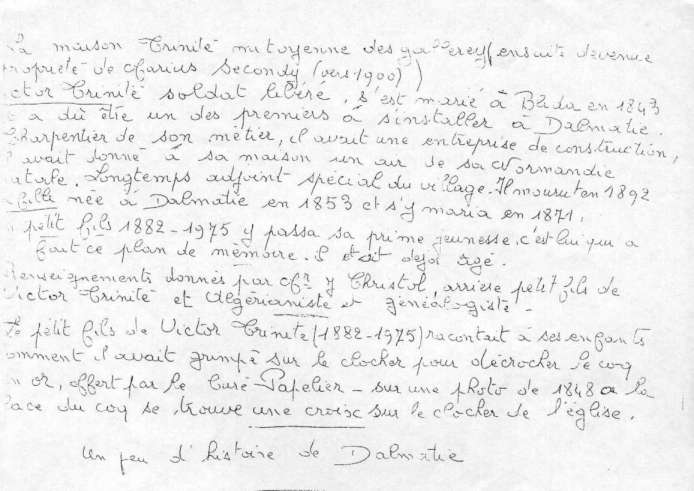 La maison Trinité mitoyenne des ga (ensuite devenue
propriété de Marius Secondy (vers 1900))
ctor Trinité soldat libéré, s'est marié à Blida en 1843
a dû être un des premiers à s'installer à Dalmatie.
Charpentier de son métier, il avait une entreprise de construction,
avait donné à sa maison un air de sa Normandie
atale. Longtemps adjoint spécial du village. Il mourut en 1892
fille née à Dalmatie en 1853 et s'y maria en 1871.
petit fils 1882-1975 y passa sa prime jeunesse, c'est lui qui a
fait ce plan de mémoire. Il était déjà âgé.
Renseignements donnés par Mr Y Christol, arrière petit fils de
Victor Trinité et Algérianiste et généalogiste -
Le pétit fils de Victor Trinité (1882-1975) racontait à ses enfants
omment il avait grimpé sur le clocher pour décrocher le coq
en or, offert par le Curé Papelier - sur une photo de 1848 a la
lace du coq se trouve une croix sur le clocher de l'église.
Un peu d'histoire de Dalmatie